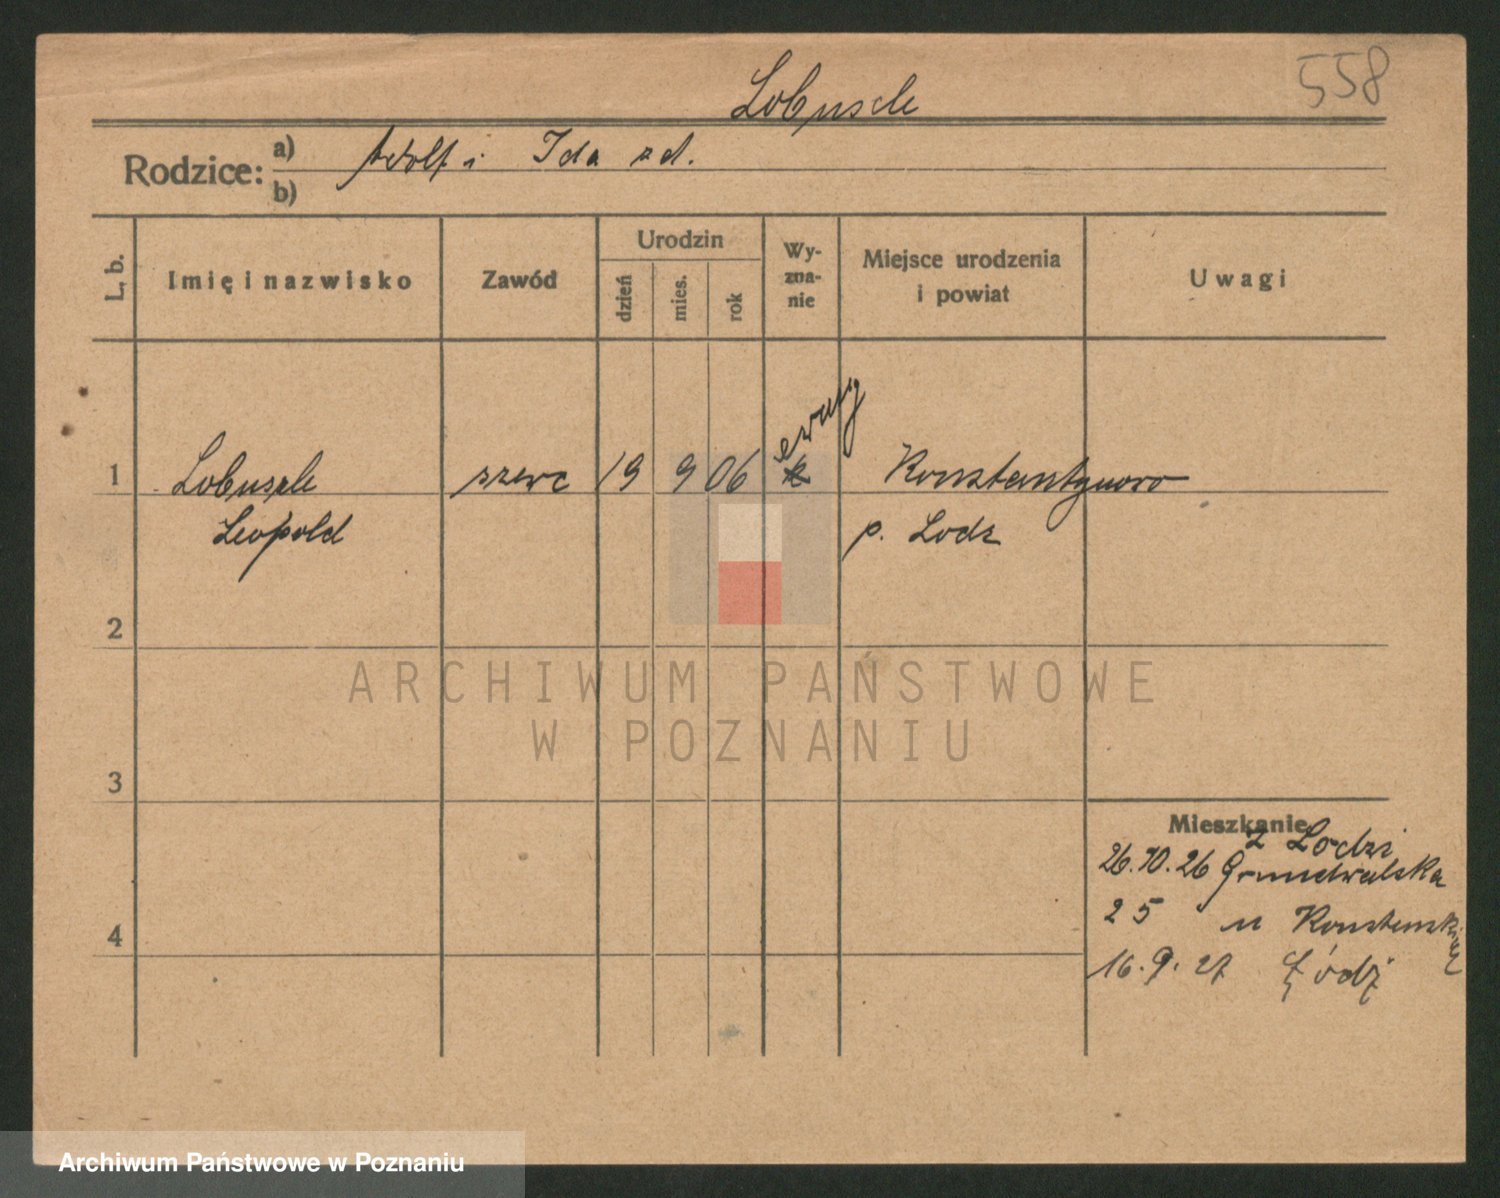 558
Lobuscle
Rodzice: a) Adolf i Ida zd.
b)
L. b.
Imię i nazwisko
Zawód
Urodzin
dzień
mies.
rok
Wy-
zna-
nie
Miejsce urodzenia
i powiat
Uwagi
1
Lobuscle
Leopold
szewc
19
9
06
ewang
Konstantynowo
p. Lodz
2
3
4
Mieszkanie
z Lodzi
26.10.26 Grunwalska
25 u
16.9.27 Łódź
ARCHIWUM PAŃSTWOWE
W POZNANIU
Archiwum Państwowe w Poznaniu